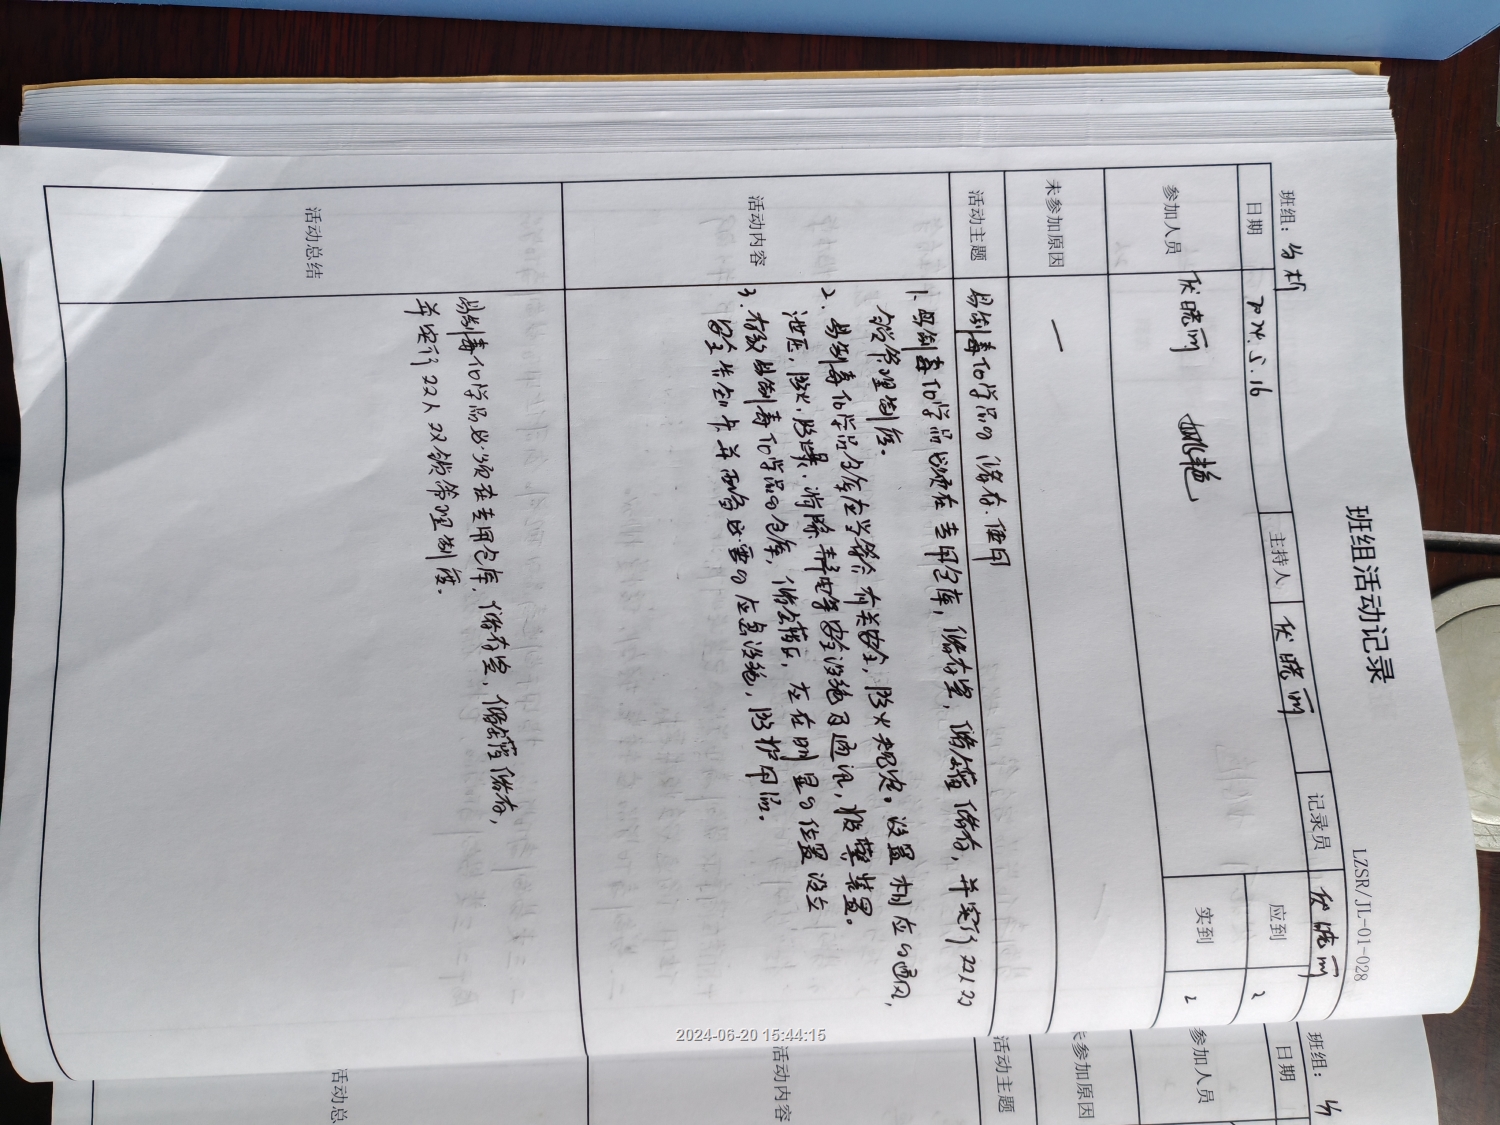 班组活动记录
LZSR/JL-01-028
班组：分析
日期 2024.5.16 主持人 伏晓丽 记录员 伏晓丽
参加人员 伏晓丽 姚艳 应到 2
实到 2
未参加原因 一
活动主题 易制毒化学品的储存.使用
活动内容
1. 易制毒化学品必须在专用仓库，储存室，储罐储存，并实行双人双
锁管理制度。
2. 易制毒化学品仓库应当符合有关安全，防火规定，设置相应的通风，
泄压，防火，防爆，消除静电等安全设施及通讯，报警装置。
3. 存放易制毒化学品的仓库，储罐区，应在明显的位置设立
安全告知卡并配备必要的应急设施，防护用品。
活动总结
易制毒化学品必须在专用仓库，储存室，储罐储存，
并实行双人双锁管理制度。
班组：分
日期
参加人员
参加原因
活动主题
活动内容
活动总
2024-06-20 15:44:15